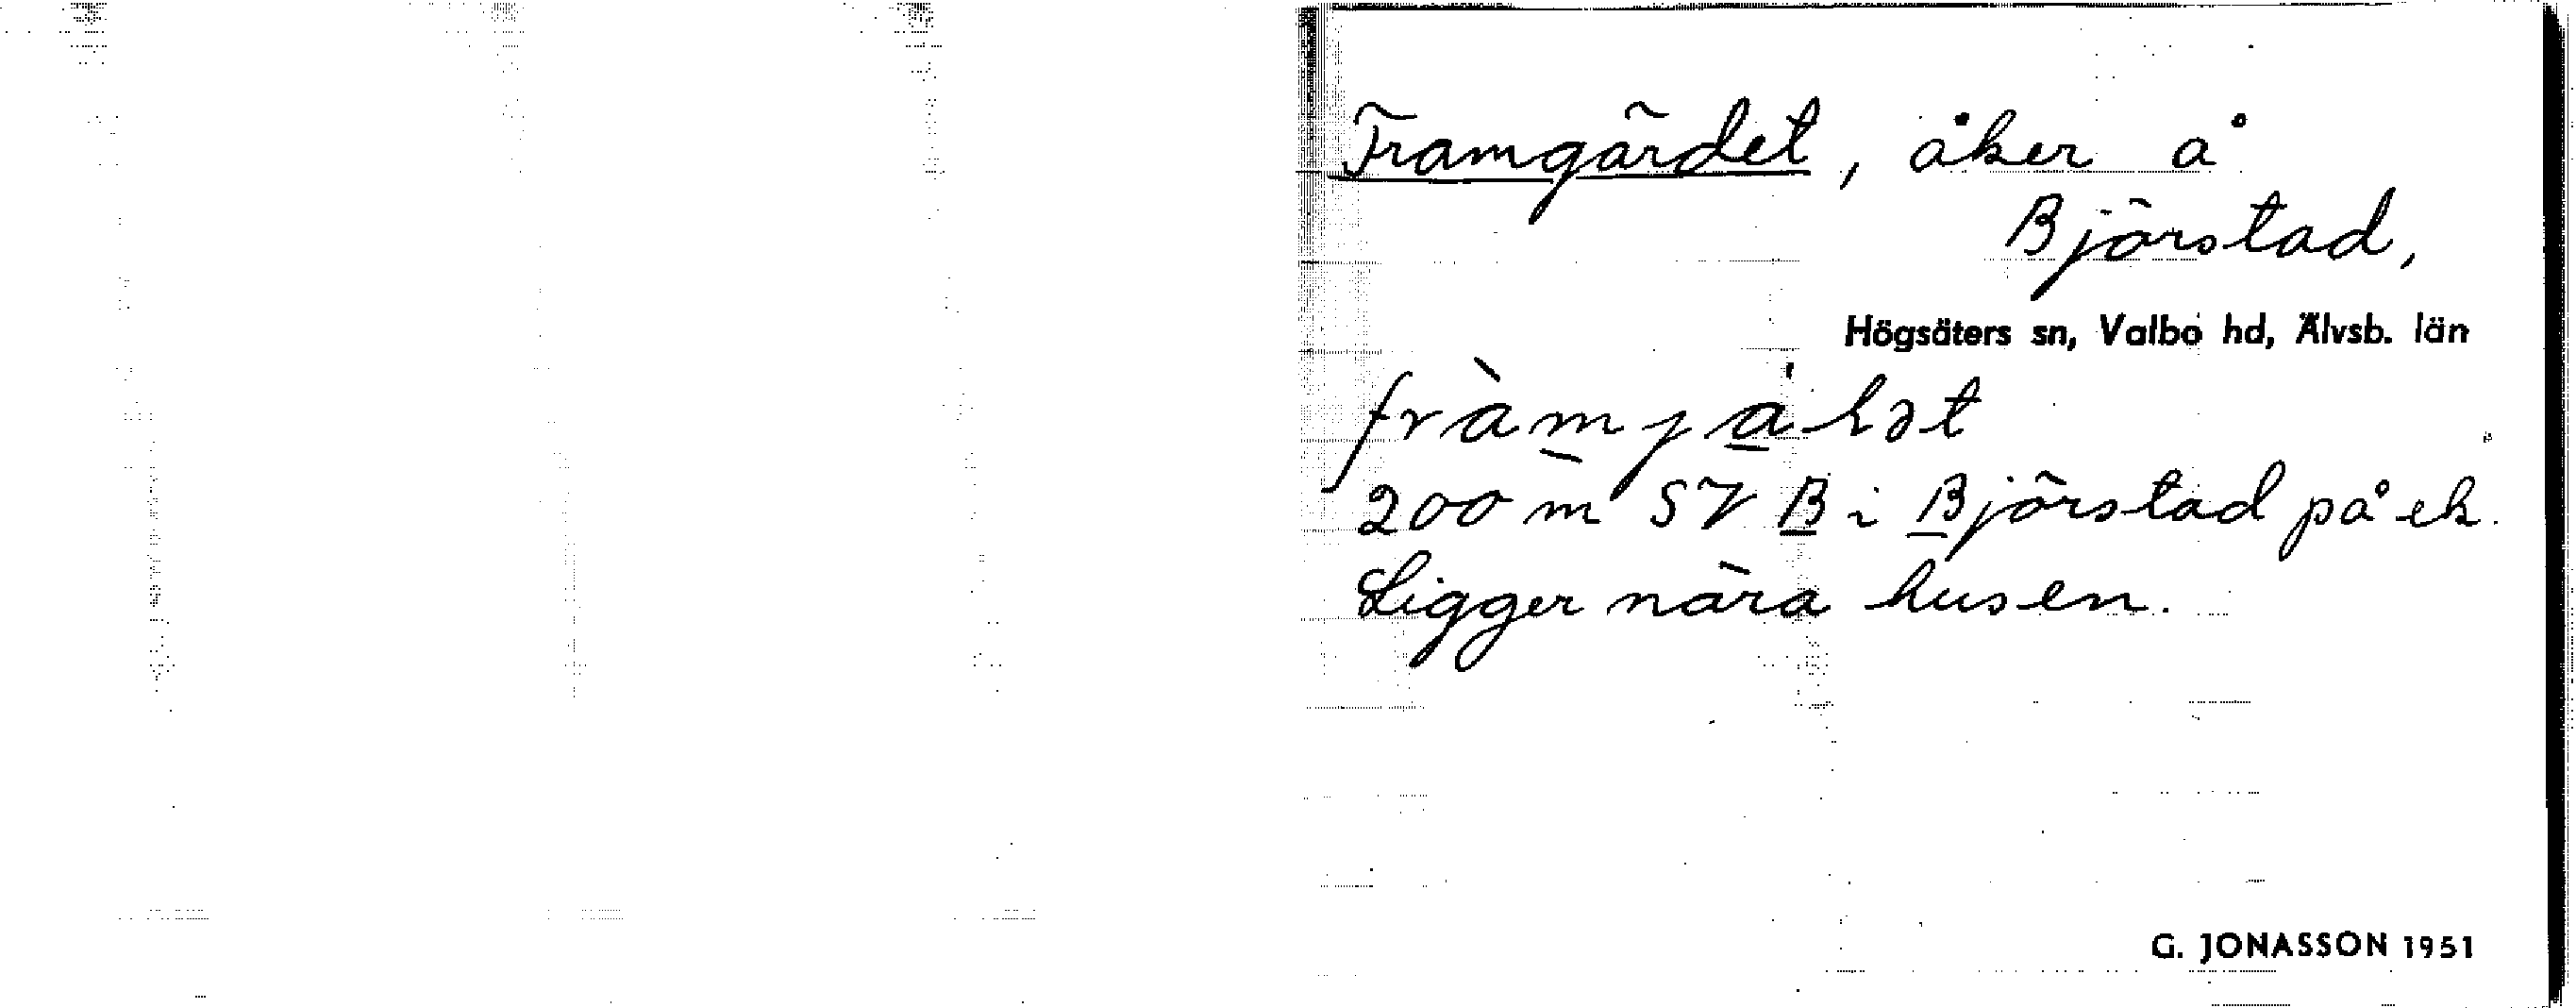 Framgärdet, åker å
Björstad,
Högsäters sn, Valbo hd, Älvsb. län
200 m SV B i Björstad på ek.
Ligger nära husen.
G. JONASSON 1951